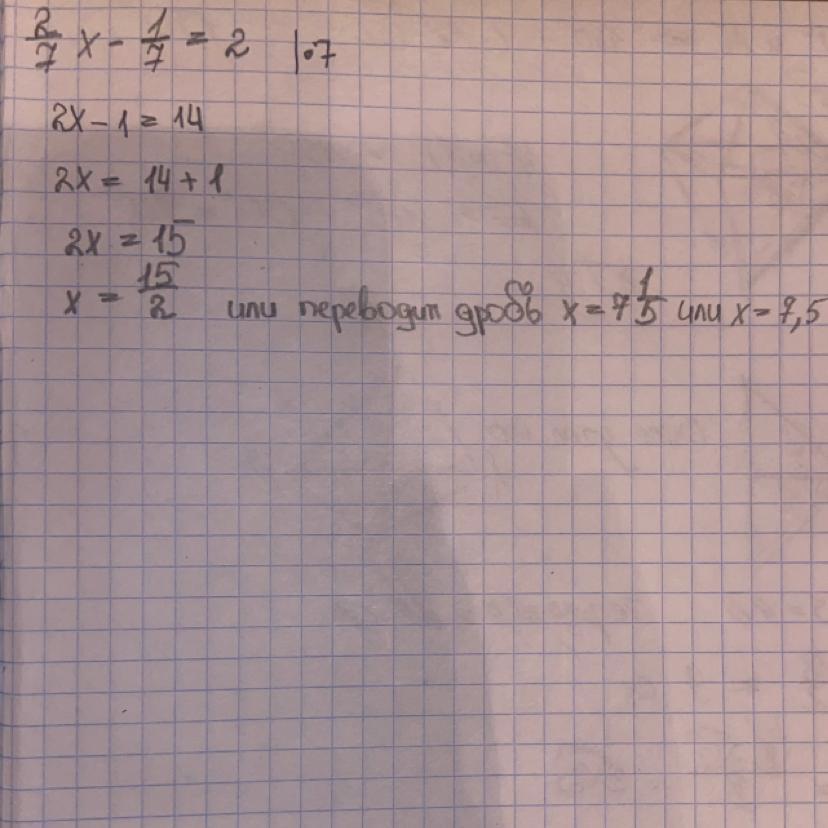 2/7 x - 1/7 = 2 |•7
2x - 1 = 14
2x = 14 + 1
2x = 15
x = 15/2 или переводим дробь x = 7 1/5 или x = 7,5